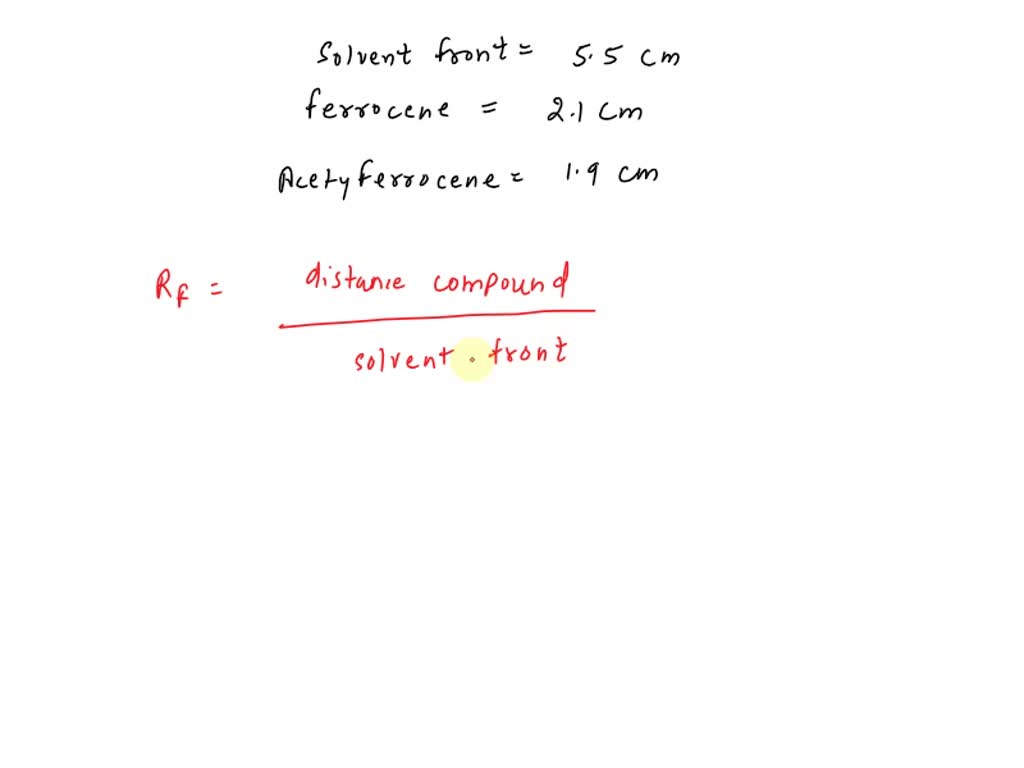 Solvent front = 5.5 cm
ferrocene = 2.1 cm
Acetyferrocene = 1.9 cm
Rf = distance compound
solvent front